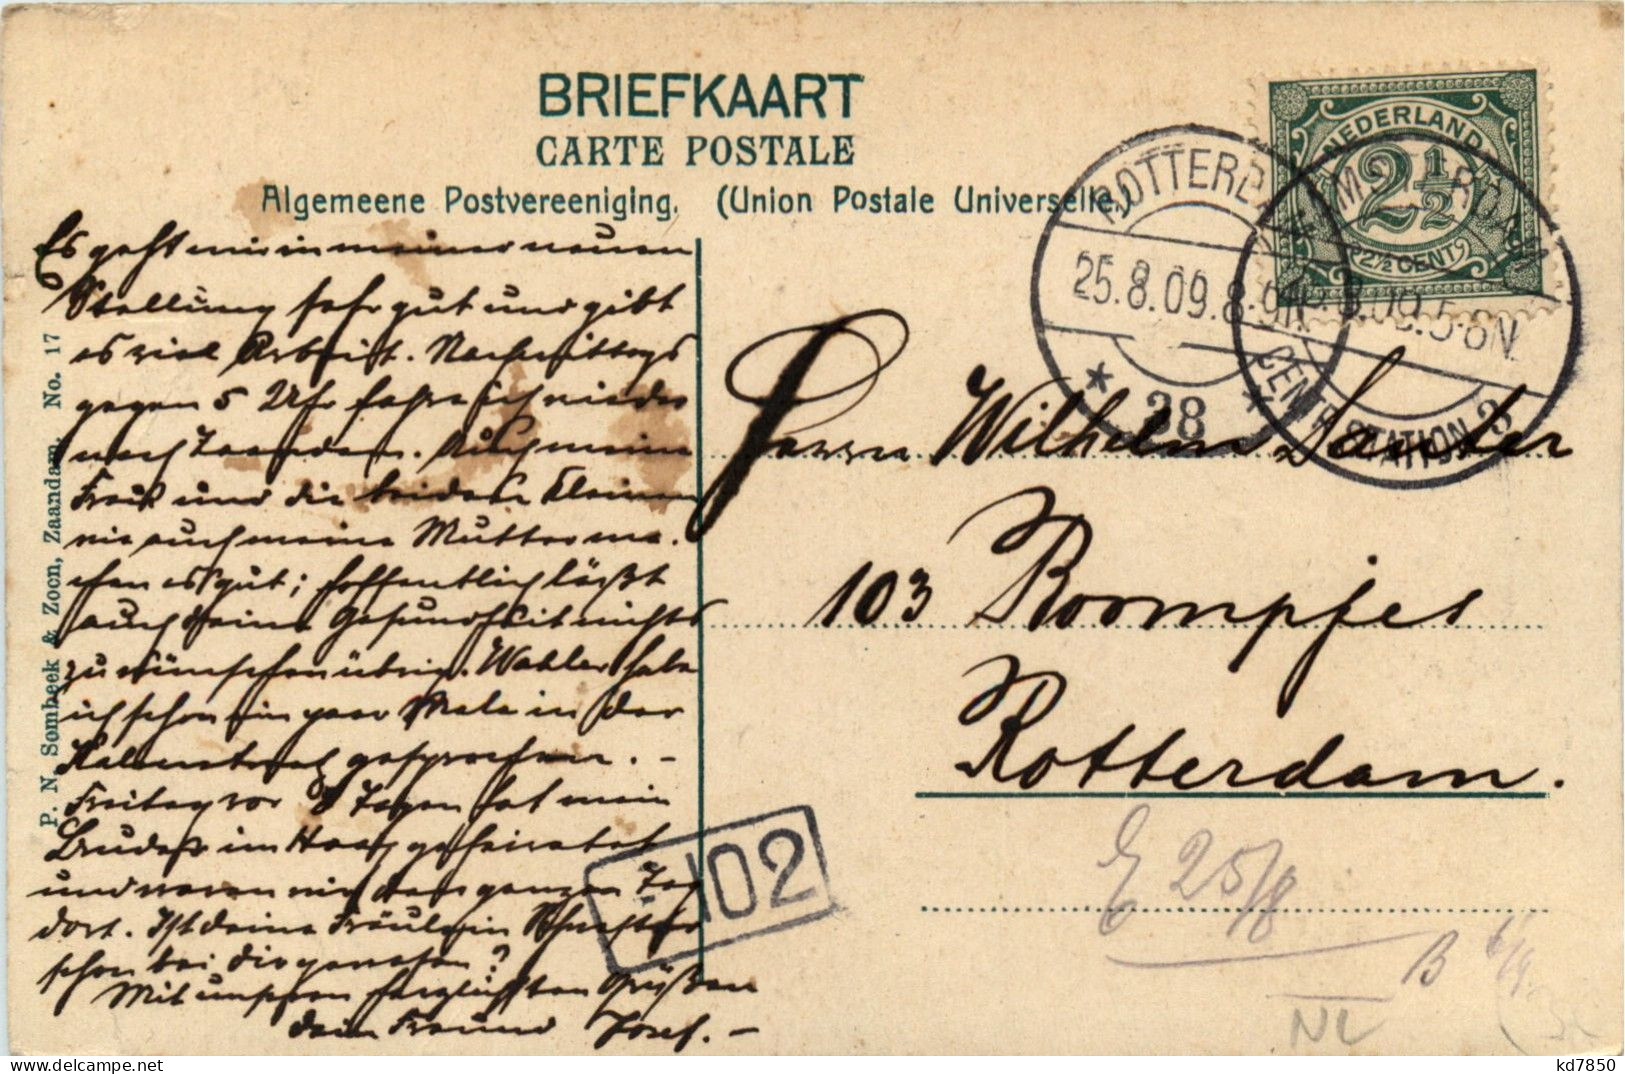 BRIEFKAART
CARTE POSTALE
Algemeene Postvereeniging. (Union Postale Universelle.)
NEDERLAND
2½
2½ CENT
ROTTERDAM
25.8.09.8-9
28
AMSTERDAM
5-8N
CENTR. STATION 3
Es geht mir in meiner neuen
Stellung sehr gut und gibt
es viel Arbeit. Nachmittags
gegen 5 Uhr fahre ich wieder
nach Zaandam. Auch meine
Frau und die beiden Kleinen
wie auch meine Mutter ma-
chen es gut; hoffentlich läßt
auch deine Gesundheit nichts
zu wünschen übrig. Wahler habe
ich schon ein paar Male in der
Kalverstraat gesprochen. -
Freitag vor 8 Tagen hat mein
Bruder im Haag geheiratet
und waren wir den ganzen Tag
dort. Ist deine Fräulein Schwester
schon bei dir gewesen?
Mit unseren herzlichsten Grüßen
dein Freund Josef. -
P. N. Sombeek & Zoon, Zaandam. No. 17
Herrn Wilhelm Sauter
103 Boompjes
Rotterdam.
102
E 25/8
B 6/9
NL
kd7850